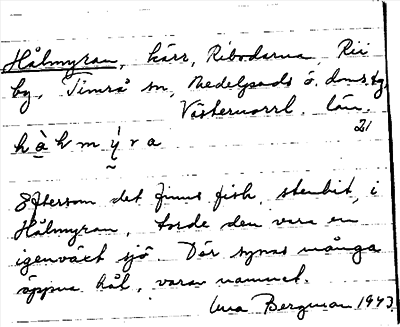 Hålmyran, kärr, Ribodarna, Rii
by, Timrå sn, Medelpads ö. dmstg
Västernorrl. län.
21
h à h m ý r a
Eftersom det finns fisk, stenbit, i
Hålmyran, torde den vara en
igenväxt sjö. Där synas många
öppna hål, varav namnet.
Una Bergman 1943.